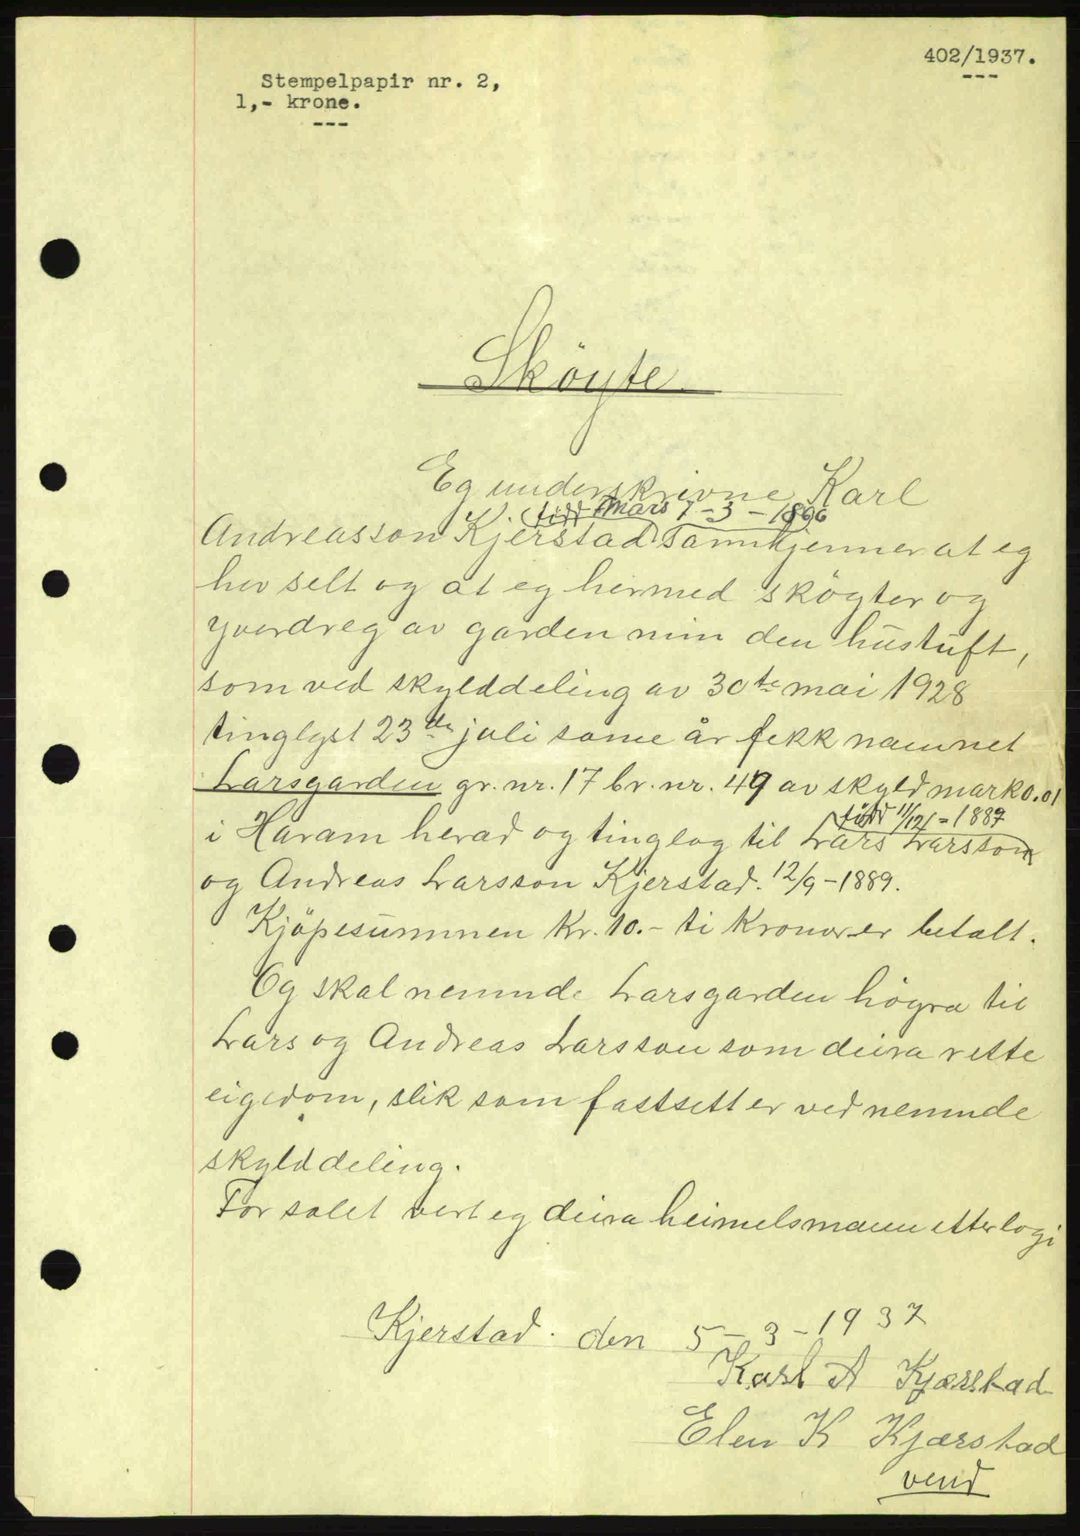 402/1937.
Stempelpapir nr. 2,
1,- krone.
Sköyte
Eg underskrivne Karl
(född mars 1-3-1896
Andreasson Kjerstad sannkjenner at eg
hev selt og at eg hermed sköyter og
yverdreg av garden min den hustuft,
som ved skylddeling av 30te mai 1928
tinglyst 23de juli same år fekk namnet
Larsgarden gr. nr. 17 br. nr. 49 av skyld mark 0.01
född 11/12/-1887
i Haram herad og tinglag til Lars Larsson
og Andreas Larsson Kjerstad. 12/9-1889.
Kjöpesummen Kr. 10.- ti kronor er betalt.
Og skal nemnde Larsgarden högra til
Lars og Andreas Larsson som deira rette
eigedom, slik som fastsett er ved nemnde
skylddeling.
For salet vert eg deira heimelsmann etter logi
Kjerstad. den 5-3-1937
Karl A Kjærstad
Elen K Kjærstad
vend